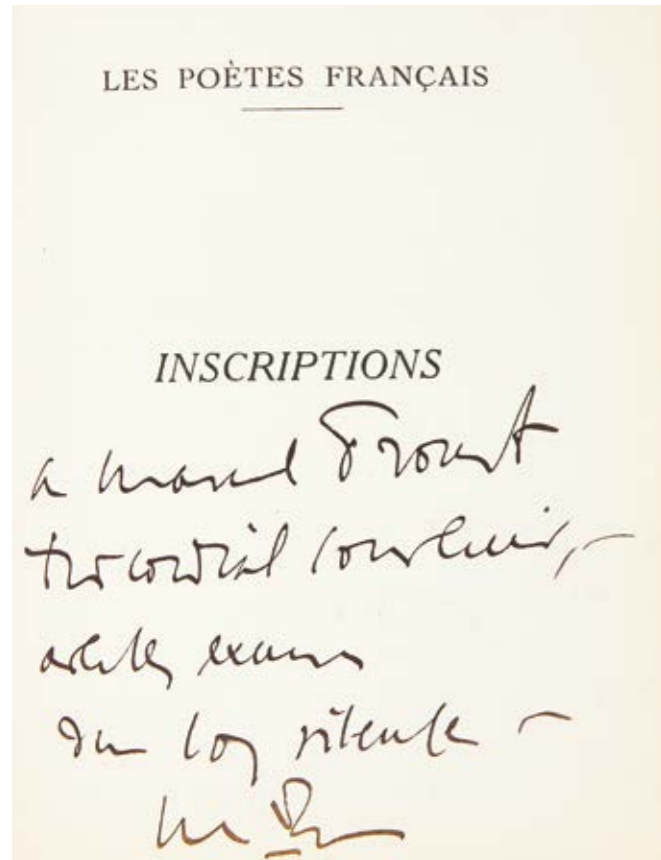 LES POÈTES FRANÇAIS
INSCRIPTIONS
a Marcel Proust
très cordial souvenir, –
avec les excuses
d'un long silence –